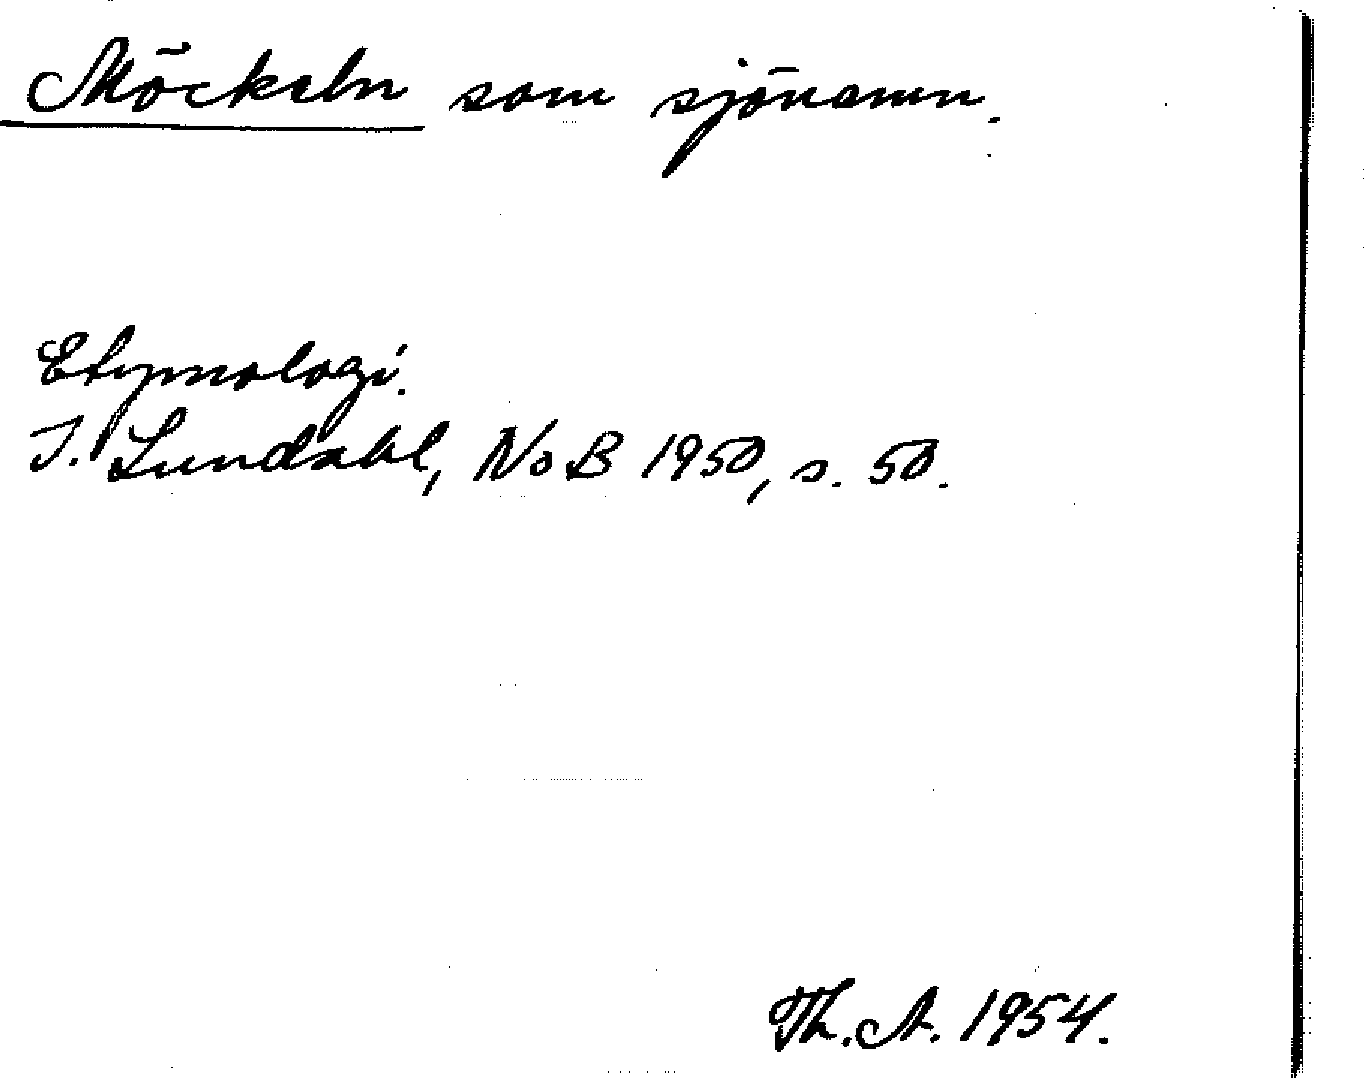 Möckeln som sjönamn.
Etymologi.
I. Lundahl, NoB 1950, s. 50.
Th. A. 1954.